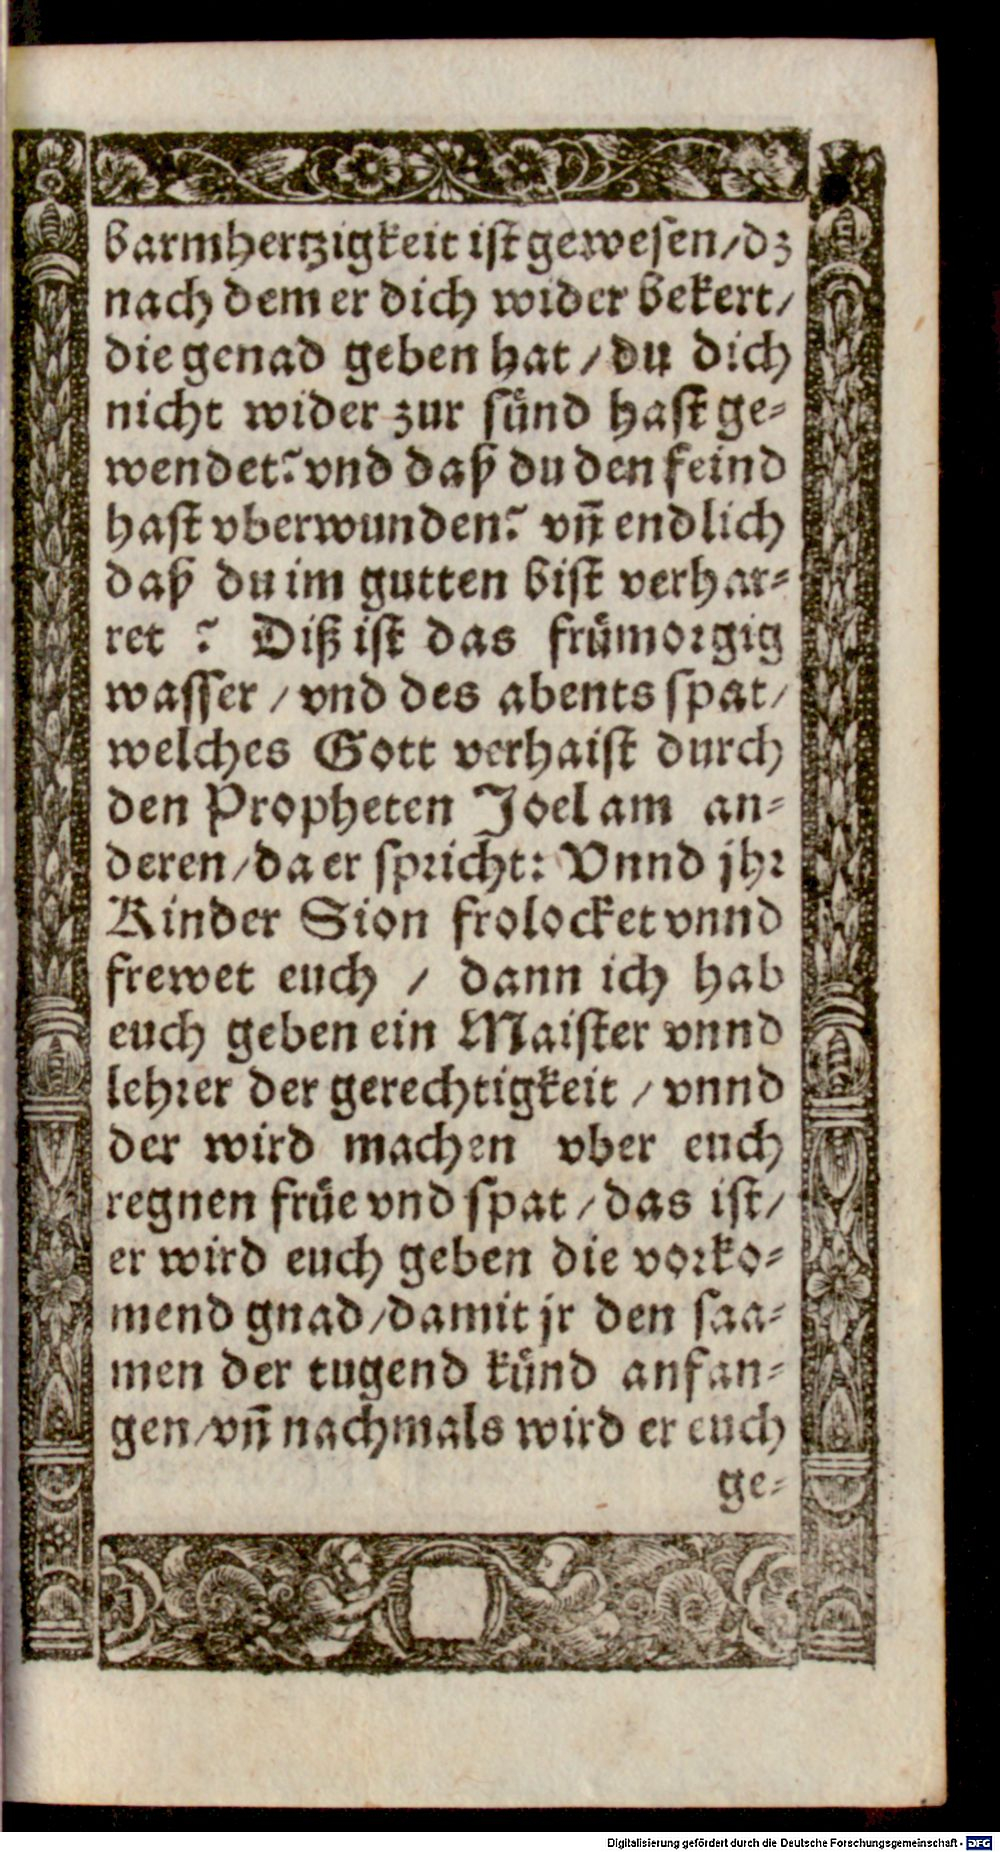 barmhertzigkeit ist gewesen/dz
nach dem er dich wider bekert/
die genad geben hat / du dich
nicht wider zur sünd hast ge-
wendet? vnd daß du den feind
hast vberwunden? vñ endlich
daß du im gutten bist verhar-
ret ? Diß ist das frümorgig
wasser / vnd des abents spat/
welches Gott verhaist durch
den Propheten Joel am an-
deren/da er spricht: Vnnd jhr
Kinder Sion frolocket vnnd
frewet euch / dann ich hab
euch geben ein Maister vnnd
lehrer der gerechtigkeit / vnnd
der wird machen vber euch
regnen früe vnd spat / das ist/
er wird euch geben die vorko-
mend gnad/damit jr den saa-
men der tugend künd anfan-
gen/vñ nachmals wird er euch
ge-
Digitalisierung gefördert durch die Deutsche Forschungsgemeinschaft - DFG